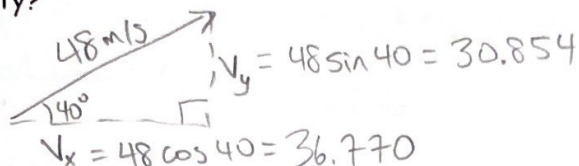 ly?
48 m/s
Vy = 48 sin 40 = 30.854
40°
Vx = 48 cos 40 = 36.770